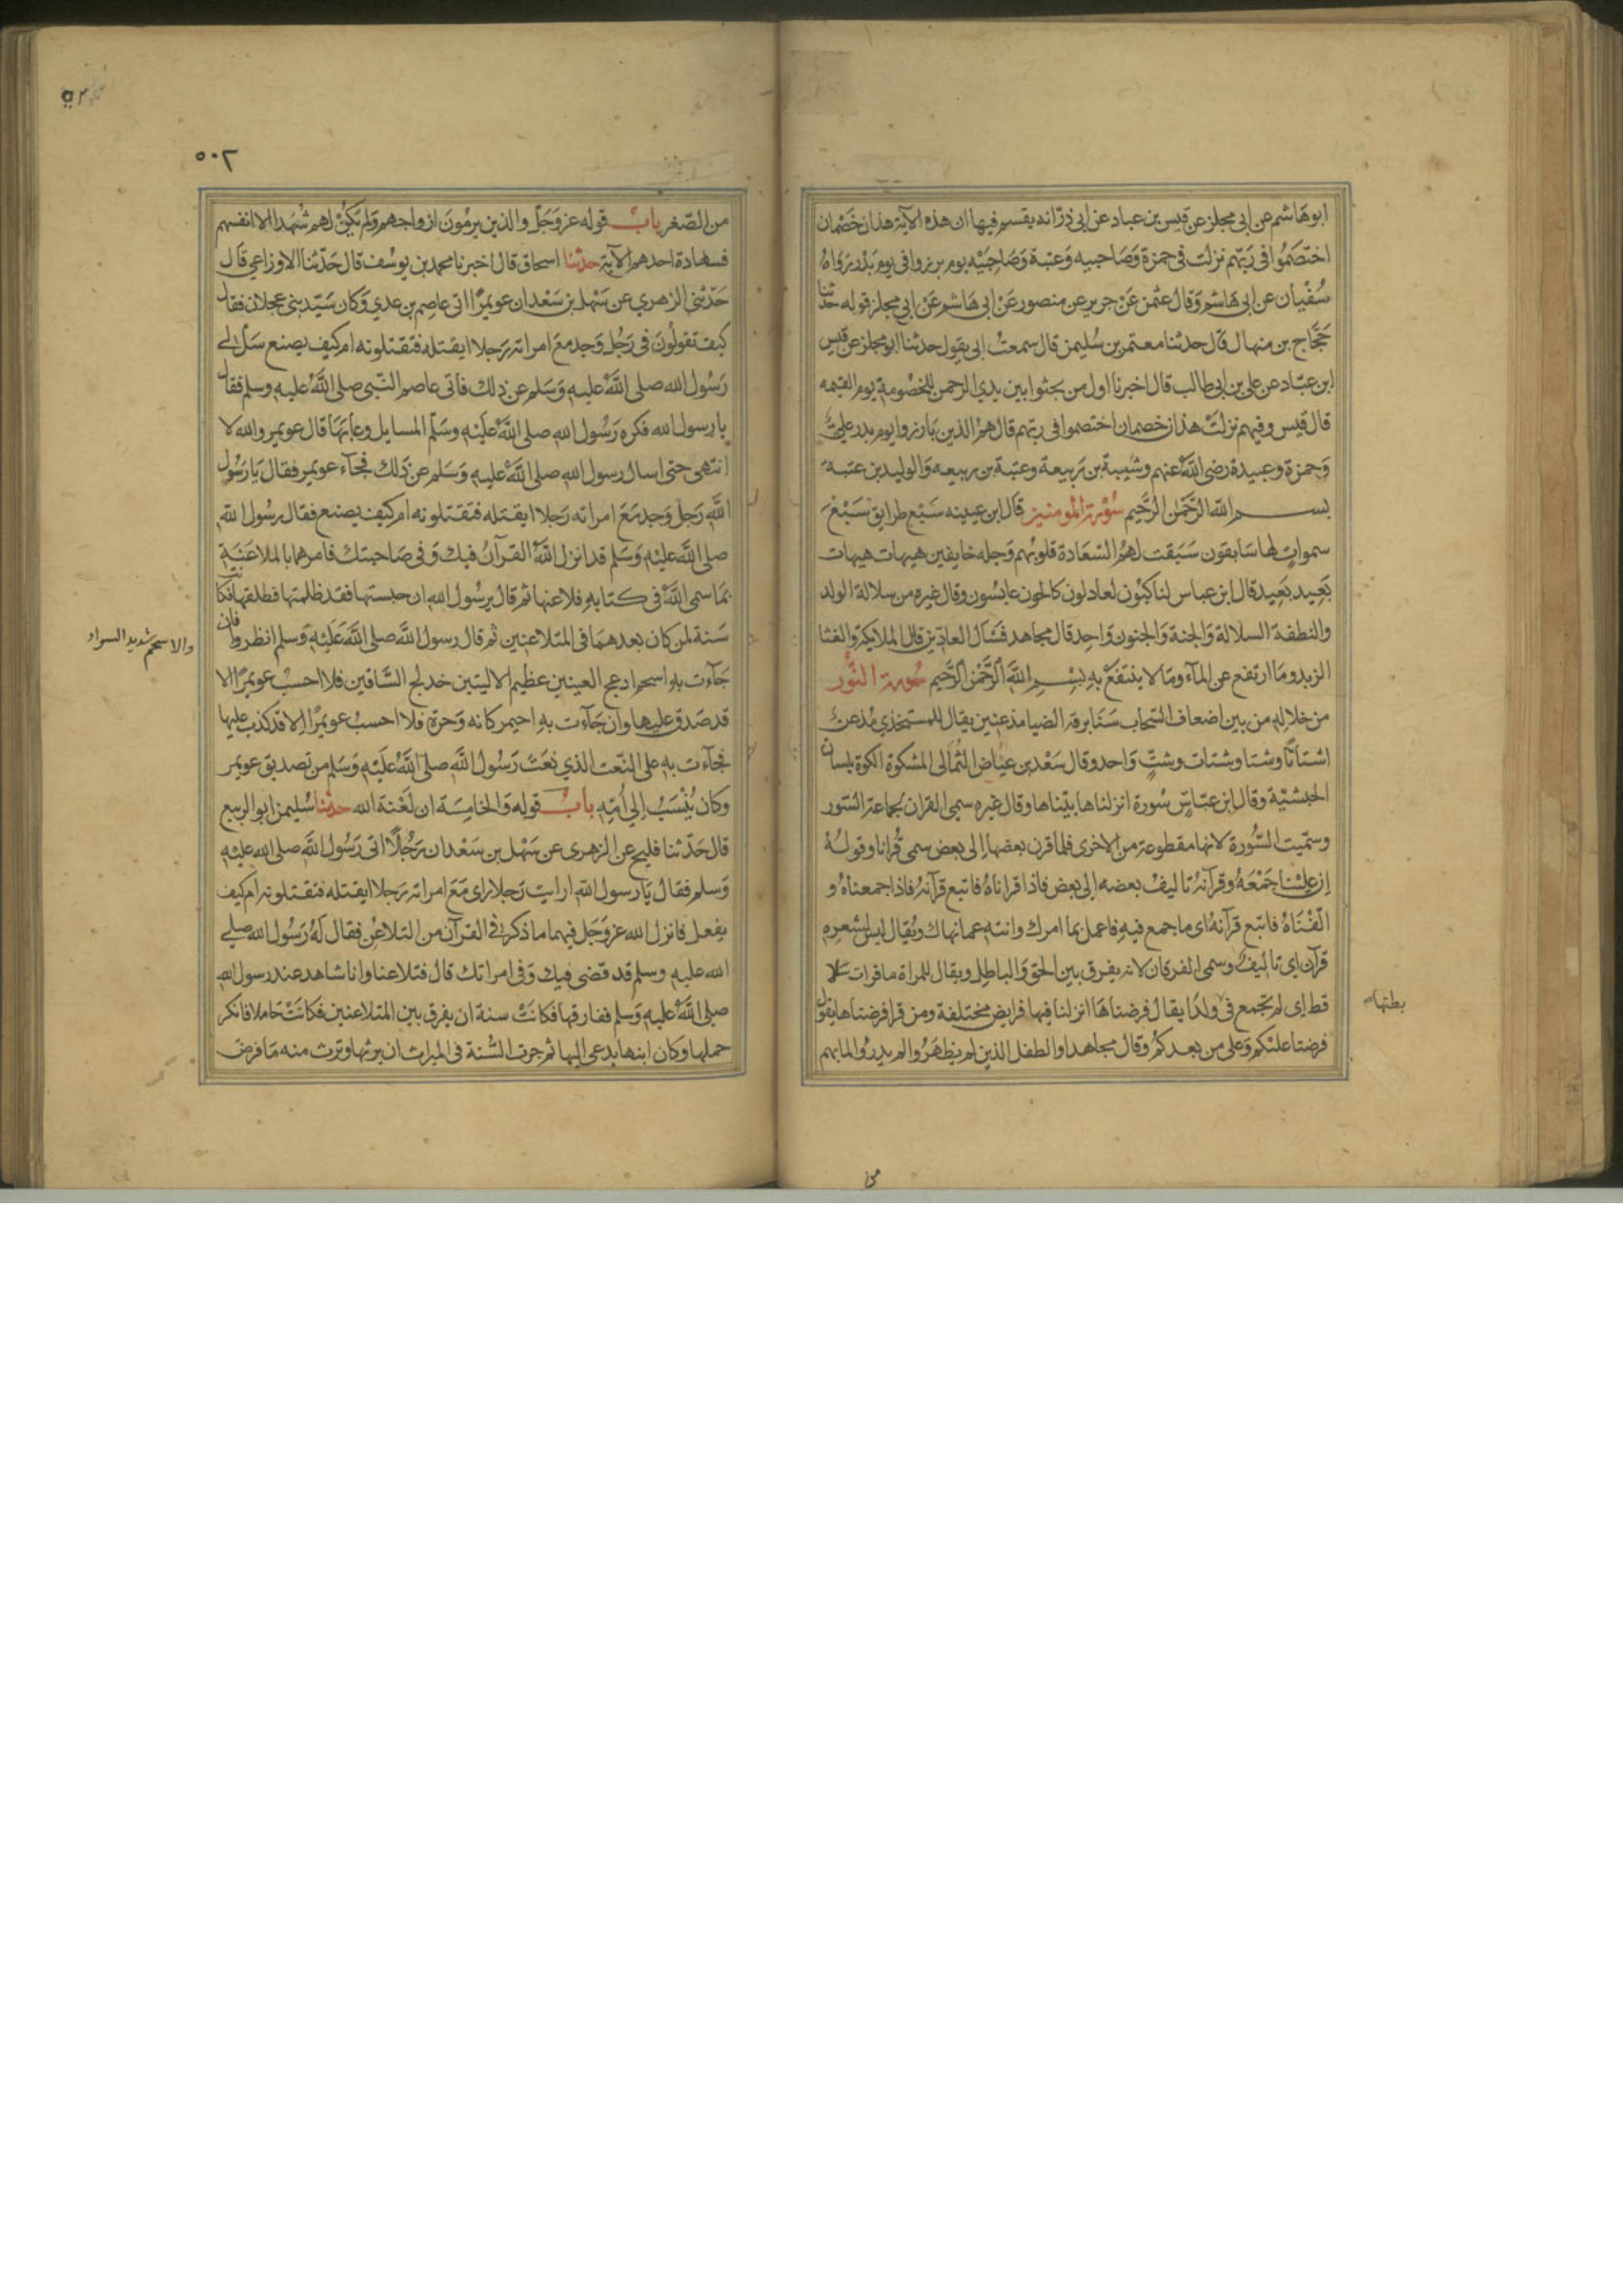 ابو هاشم عن ابي مجلز عن قيس بن عباد عن ابي ذر انه يقسم فيها ان هذه الآية هذان خصمان
اختصموا في ربهم نزلت في حمزة وصاحبيه وعتبة وصاحبيه يوم برزوا في يوم بدر رواه
سفيان عن ابي هاشم وقال عثمن عن جرير عن منصور عن ابي هاشم عن ابي مجلز قوله حدثنا
حجاج بن منهال قال حدثنا معتمر بن سليمن قال سمعت ابي يقول حدثنا ابو مجلز عن قيس
ابن عباد عن علي بن ابي طالب قال اخبرنا اول من يجثوا بين يدي الرحمن للخصومة يوم القيمه
قال قيس وفيهم نزلت هذان خصمان اختصموا في ربهم قال هم الذين بارزوا يوم بدر علي
وحمزة وعبيدة رضي الله عنهم وشيبة بن ربيعة وعتبة بن ربيعه والوليد بن عتبة
بسم الله الرحمن الرحيم سورة المومنين قال ابن عيينه سبع طرايق سبع
سموات لها سابقون سبقت لهم السعادة قلوبهم وجله خايفين هيهات هيهات
بعيد بعيد قال ابن عباس لناكبون لعادلون كالحون عابسون وقال غيره من سلالة الولد
والنطفة السلالة والجنة والجنون واحد قال مجاهد فسال العادين قال الملايكة والغثا
الزبد وما ارتفع عن المآء وما لا ينتفع به بسم الله الرحمن الرحيم سورة النور
من خلاله من بين اضعاف السحاب سنا برقه الضيا مذعنين يقال للمستخذي مذعن
اشتاتا وشتا وشتات وشت واحد وقال سعد بن عياض الثمالي المشكوة الكوة بلسان
الحبشية وقال ابن عباس سورة انزلناها بيناها وقال غيره سمي القران لجماعة السور
وسميت السورة لانها مقطوعة من الاخرى فلما قرن بعضها الى بعض سمي قرانا وقوله
ان علينا جمعه وقرآنه تاليف بعضه الي بعض فاذا قراناه فاتبع قرآنه فاذا جمعناه و
الفناه فاتبع قرآنه اي ما جمع فيه فاعمل بما امرك وانته عما نهاك ويقال ليس لشعره
قرآن اي تاليف وسمي الفرقان لانه يفرق بين الحق والباطل ويقال للمراة ما قرات سلا
قط اي لم تجمع في ولدا يقال فرضناها انزلنا فيها فرايض مختلفة ومن قرا فرضناها يقول
فرضنا عليكم وعلى من بعدكم وقال مجاهد او الطفل الذين لم يظهروا لم يدروا لما بهم
بطنها
٥٠٢
من الصغر باب قوله عز وجل والذين يرمون ازواجهم ولم يكن لهم شهدا الا انفسهم
فشهادة احدهم الآية حدثنا اسحاق قال اخبرنا محمد بن يوسف قال حدثنا الاوزاعي قال
حدثني الزهري عن سهل بن سعد ان عويمرا اتى عاصم بن عدي وكان سيد بني عجلان فقال
كيف تقولون في رجل وجد مع امراته رجلا ايقتله فتقتلونه ام كيف يصنع سل لي
رسول الله صلى الله عليه وسلم عن ذلك فأتى عاصم النبي صلى الله عليه وسلم فقال
يا رسول الله فكره رسول الله صلى الله عليه وسلم المسايل وعابها قال عويمر والله لا
انتهي حتى اسال رسول الله صلى الله عليه وسلم عن ذلك فجآء عويمر فقال يا رسول
الله رجل وجد مع امراته رجلا ايقتله فتقتلونه ام كيف يصنع فقال رسول الله
صلى الله عليه وسلم قد انزل الله القرآن فيك وفي صاحبتك فامرهما بالملاعنة
بما سمى الله في كتابه فلاعنها ثم قال يرسول الله ان حبستها فقد ظلمتها فطلقها فكانت
سنة لمن كان بعدهما في المتلاعنين ثم قال رسول الله صلى الله عليه وسلم انظروا فان
والاسحم شديد السواد
جآءت به اسحم ادعج العينين عظيم الاليتين خدلج الساقين فلا احسب عويمرا الا
قد صدق عليها وان جآءت به احيمر كانه وحرة فلا احسب عويمرا الا قد كذب عليها
فجآءت به على النعت الذي نعت رسول الله صلى الله عليه وسلم من تصديق عويمر
وكان ينسب الي أمه باب قوله والخامسة ان لعنة الله حدثنا سليمن ابو الربيع
قال حدثنا فليح عن الزهري عن سهل بن سعد ان رجلا اتى رسول الله صلى الله عليه
وسلم فقال يا رسول الله ارايت رجلا راى مع امراته رجلا ايقتله فتقتلونه ام كيف
يفعل فانزل الله عز وجل فيهما ما ذكر في القرآن من التلاعن فقال له رسول الله صلي
الله عليه وسلم قد قضي فيك وفي امراتك قال فتلاعنا وانا شاهد عند رسول الله
صلى الله عليه وسلم ففارقها فكانت سنة ان يفرق بين المتلاعنين فكانت حاملا فانكر
حملها وكان ابنها يدعى اليها ثم جرت السنة في الميراث ان يرثها وترث منه ما فرض